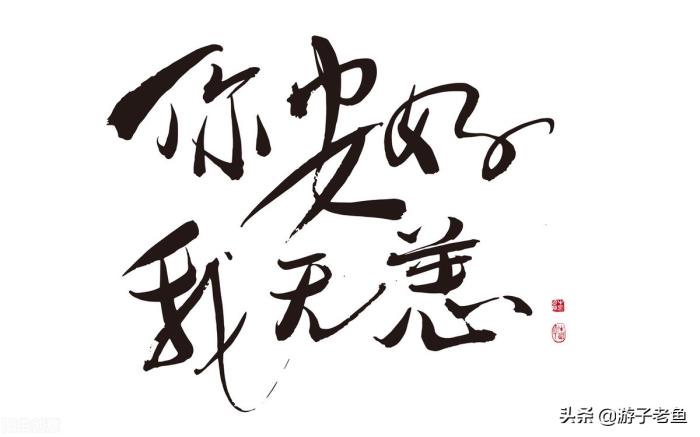 你安好
我无恙
头条 @游子老鱼